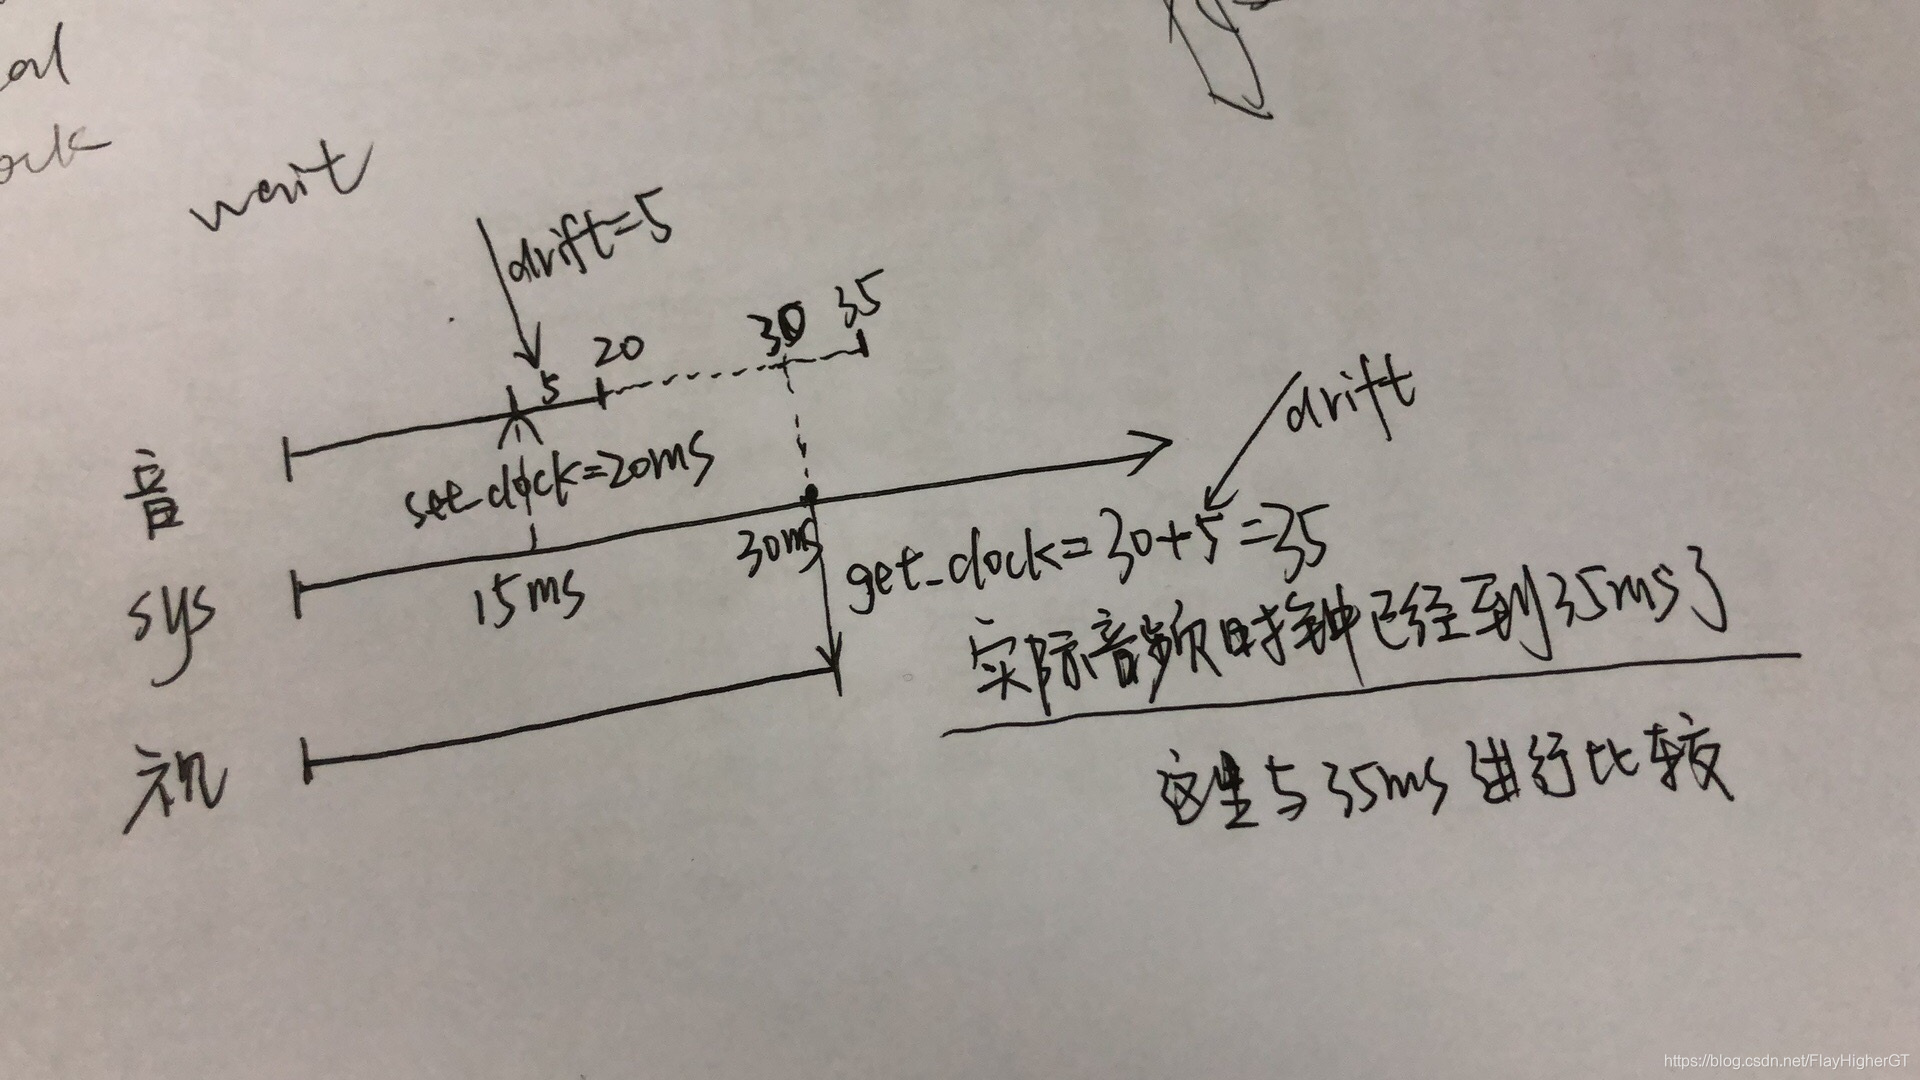 wait
drift=5
5
20
30
35
音
set_clock=20ms
drift
sys
15ms
30ms
get_clock=30+5=35
实际音频时钟已经到35ms了
视
这里与35ms进行比较
https://blog.csdn.net/FlayHigherGT